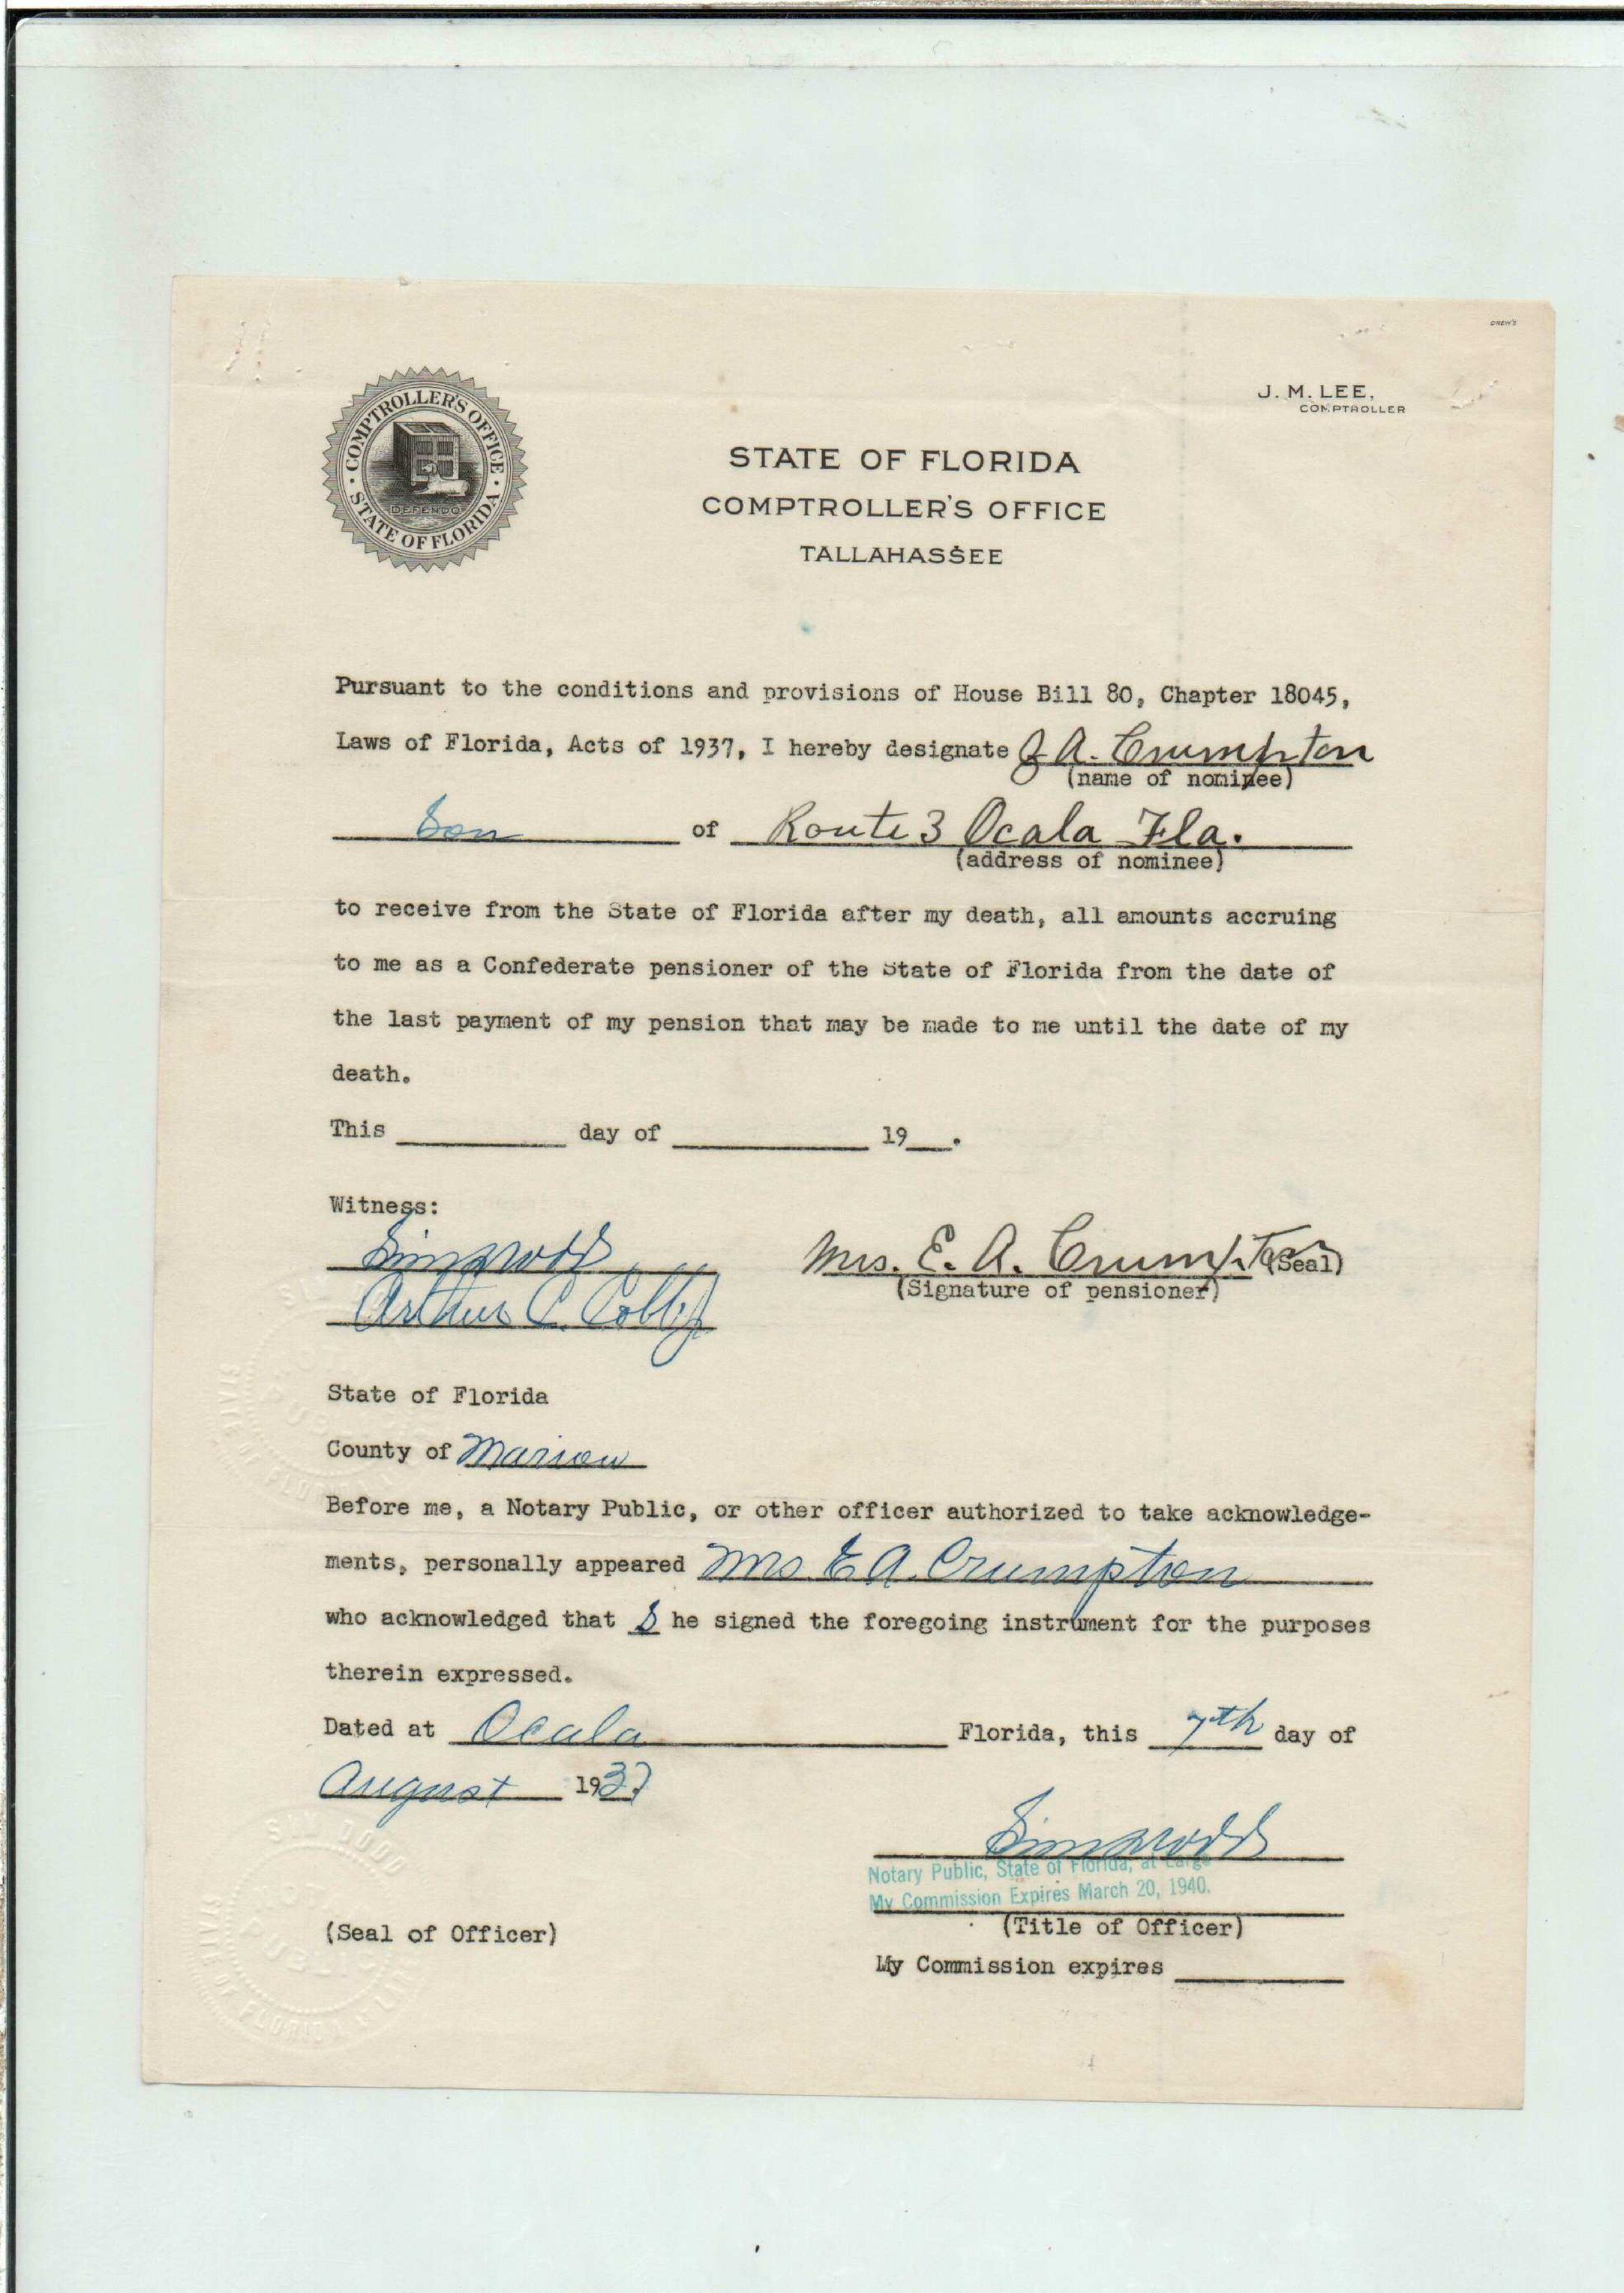 DREW'S
J. M. LEE,
COMPTROLLER
COMPTROLLER'S OFFICE
STATE OF FLORIDA
DEFENDO
STATE OF FLORIDA
COMPTROLLER'S OFFICE
TALLAHASSEE
Pursuant to the conditions and provisions of House Bill 80, Chapter 18045,
Laws of Florida, Acts of 1937, I hereby designate J A. Crumpton
(name of nominee)
Son of Route 3 Ocala Fla.
(address of nominee)
to receive from the State of Florida after my death, all amounts accruing
to me as a Confederate pensioner of the State of Florida from the date of
the last payment of my pension that may be made to me until the date of my
death.
This ____ day of ____ 19__.
Witness:
Sim Dodd
Mrs. E. A. Crumpton (Seal)
(Signature of pensioner)
Arthur C.
State of Florida
County of Marion
Before me, a Notary Public, or other officer authorized to take acknowledge-
ments, personally appeared Mrs E A. Crumpton
who acknowledged that S he signed the foregoing instrument for the purposes
therein expressed.
Dated at Ocala Florida, this 7th day of
August 1937
SIM DODD
Sim Dodd
Notary Public, State of Florida, at Large
My Commission Expires March 20, 1940.
(Title of Officer)
(Seal of Officer)
My Commission expires ____
STATE OF FLORIDA